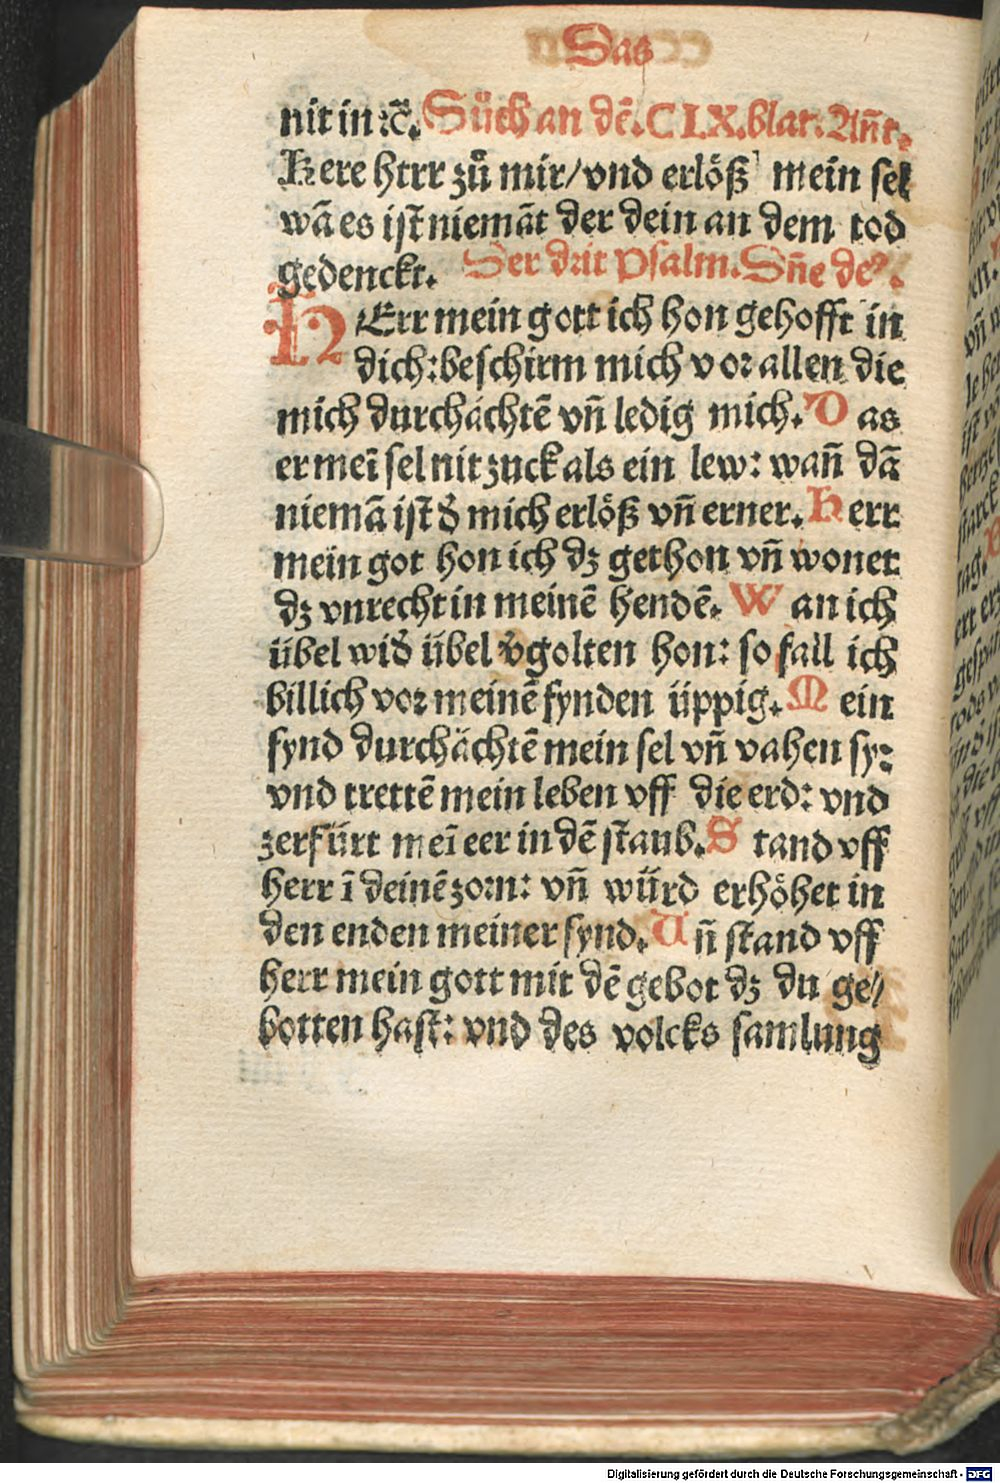 Das
nit in ⁊c̄. Sůch an dē. CLX. blat. Añt.
Kere herr zů mir/ vnd erlöß mein sel
wā es ist niemāt der dein an dem tod
gedenckt. Der drit Psalm. Dñe de⁹.
HErr mein gott ich hon gehofft in
dich: beschirm mich vor allen die
mich durchächtē vñ ledig mich. Das
er meī sel nit zuck als ein lew: wañ dā
niemā ist d̄ mich erlöß vñ erner. Herr
mein got hon ich dz gethon vñ wonet
dz vnrecht in meinē hendē. Wan ich
übel wid̄ übel v̄golten hon: so fall ich
billich vor meinē fynden üppig. Mein
fynd durchächtē mein sel vñ vahen sy:
vnd trettē mein leben vff die erd: vnd
zerfürt meī eer in dē staub. Stand vff
herr ī deinē zorn: vñ würd erhöhet in
den enden meiner fynd. Uñ stand vff
herr mein gott mit dē gebot dz du ge/
botten hast: vnd des volcks samlung
Digitalisierung gefördert durch die Deutsche Forschungsgemeinschaft - DFG